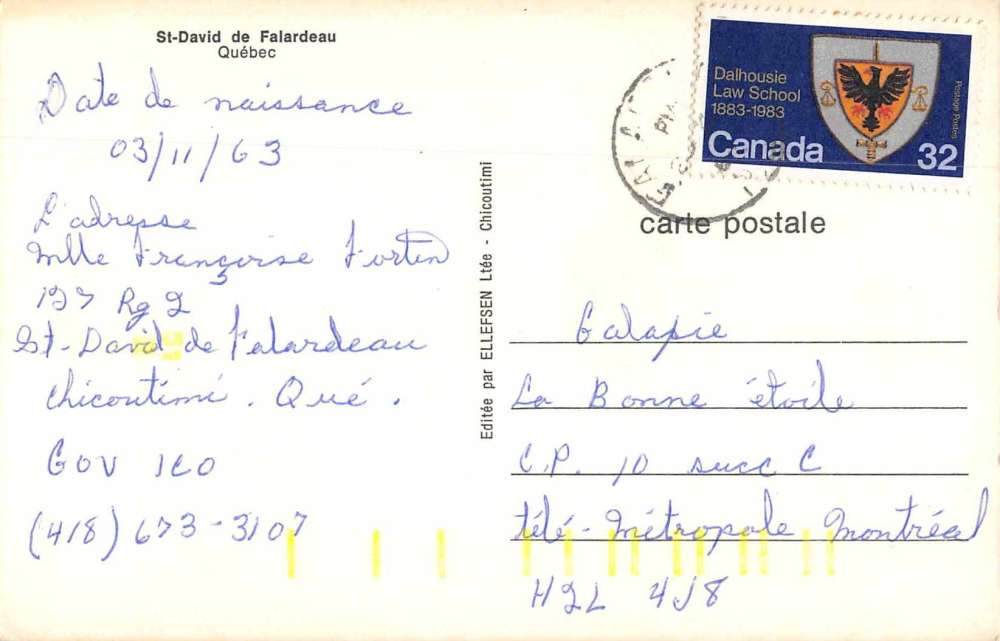 St-David de Falardeau
Québec
Date de naissance
03/11/63
L'adresse
Mlle Françoise Fortin
197 Rg 2
St-David de Falardeau
Chicoutimi. Qué.
GOV 1L0
(418) 673-3107
Editée par ELLEFSEN Ltée - Chicoutimi
Dalhousie
Law School
1883-1983
Postage Postes
Canada 32
carte postale
Galapie
La Bonne étoile
C.P. 10 succ C
télé-Métropole Montréal
H2L 4J8